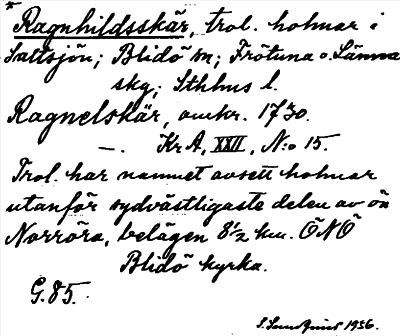 * Ragnhildsskär, trol. holmar i
Saltsjön; Blidö sn; Frötuna o. Länna
skg; Sthlms l.
Ragnelskär, omkr. 1730.
—. KrA, XXII, N:o 15.
Trol. har namnet avsett holmar
utanför sydvästligaste delen av ön
Norröra, belägen 8 1/2 km. ÖNÖ
Blidö kyrka.
G. 85.
S. Sundqvist 1936.